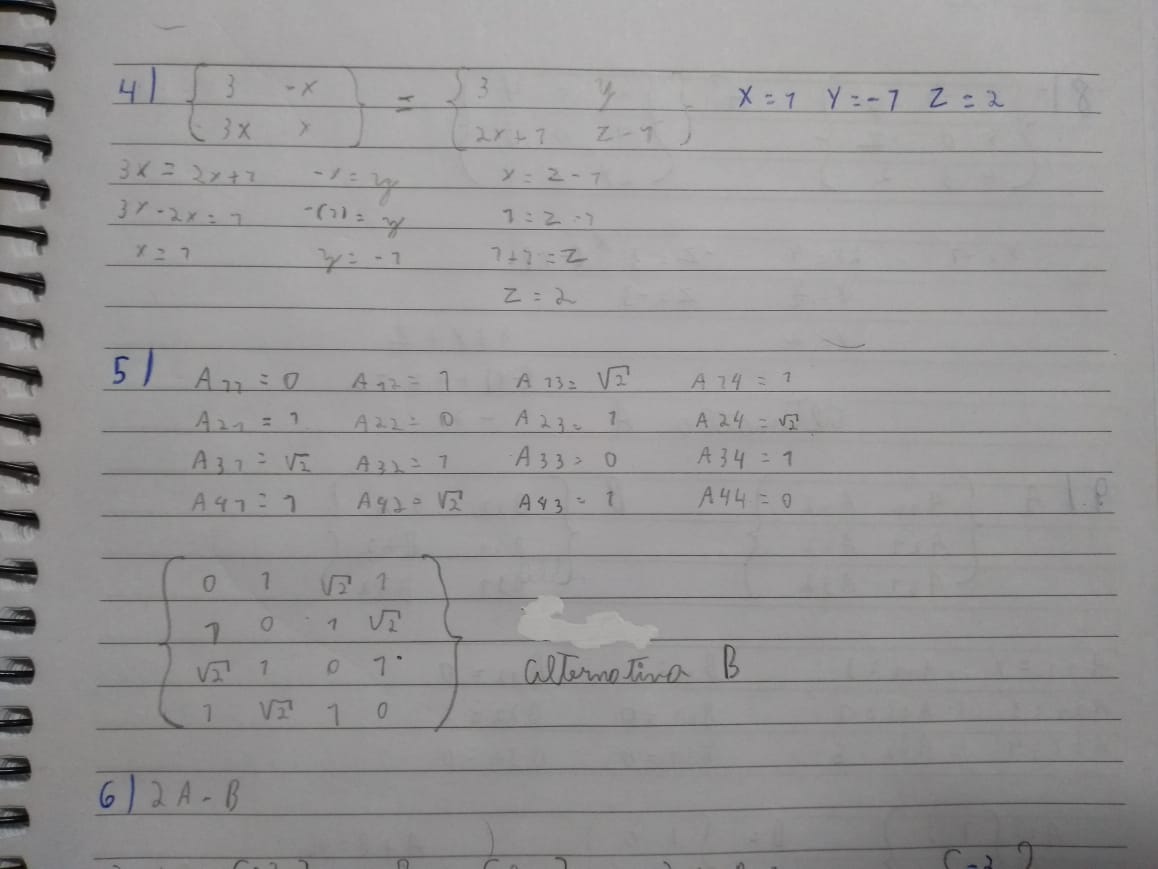 4) 3 -x = 3 y X=1 Y=-1 Z=2
3x x 2x+1 z-1
3x = 2x+1 -x=y x=z-1
3x-2x=1 -(1)=y 1=z-1
x=1 y=-1 1+1=z
z=2
5) A11=0 A12=1 A13=√2 A14=1
A21=1 A22=0 A23=1 A24=√2
A31=√2 A32=1 A33=0 A34=1
A41=1 A42=√2 A43=1 A44=0
0 1 √2 1
1 0 1 √2
√2 1 0 1
1 √2 1 0
alternativa B
6) 2A-B